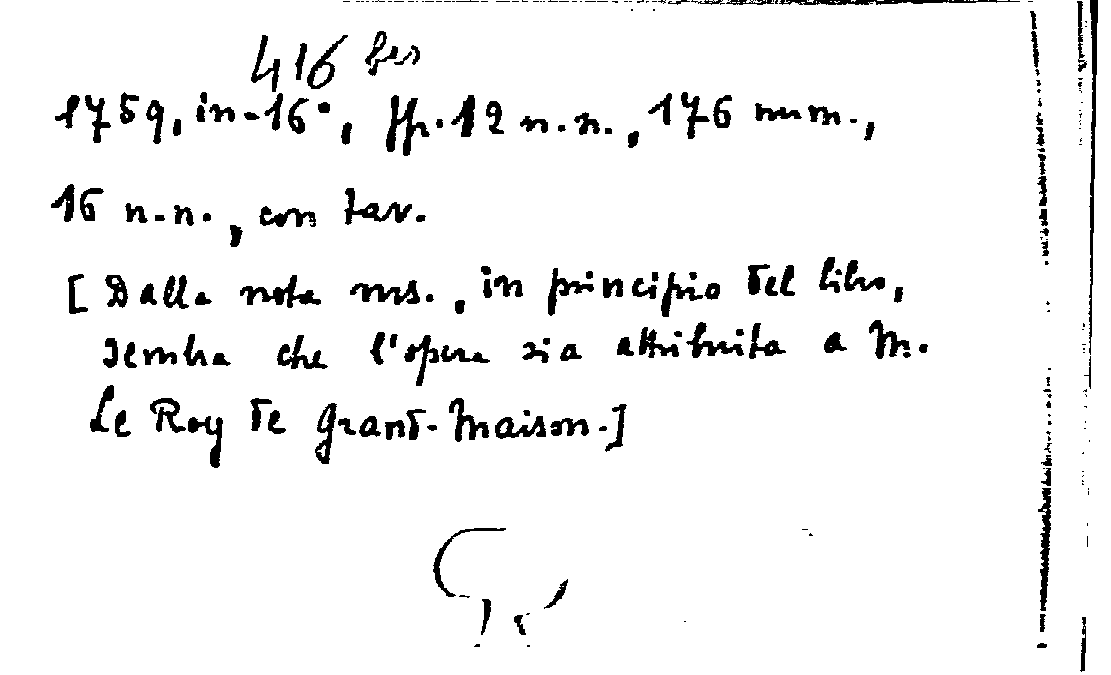 416 bis
1759, in-16°, ff. 12 n.n., 176 num.,
16 n.n., con tav.
[Dalla nota ms., in principio del libro,
sembra che l'opera sia attribuita a M.
Le Roy de Grand-Maison.]